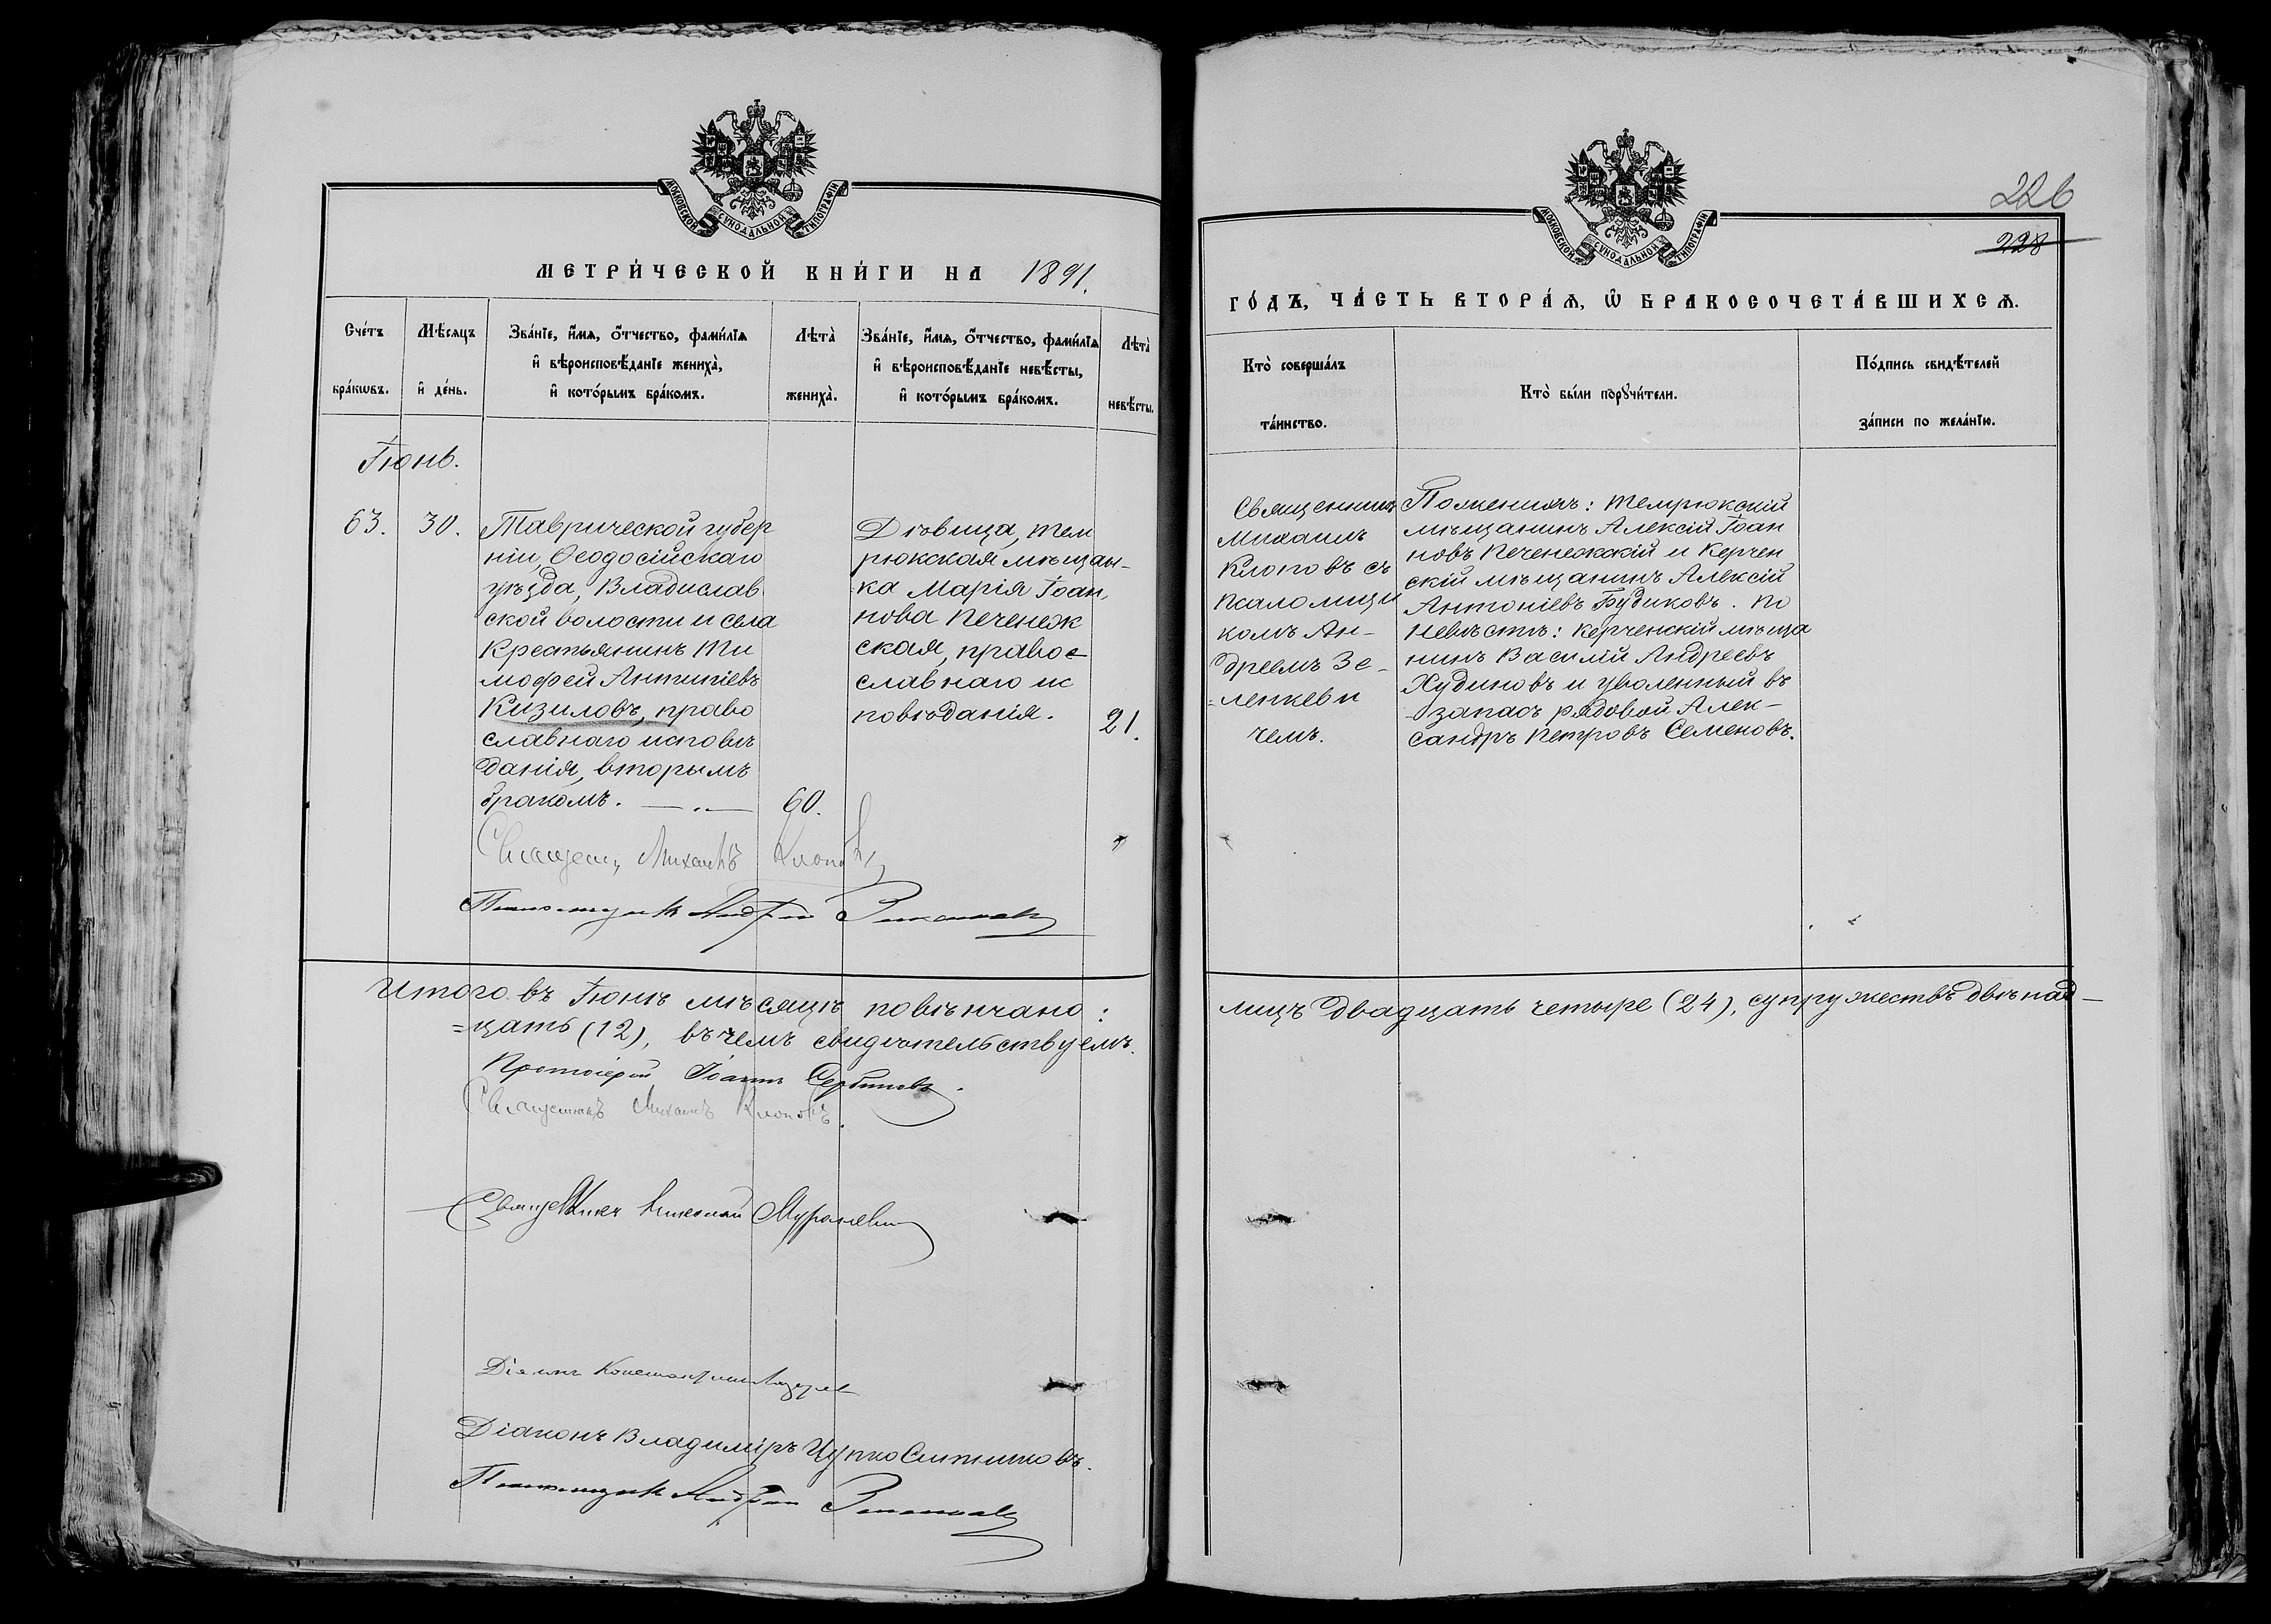 МОСКОВСКОЙ СѴНОДАЛЬНОЙ ТИПОГРАФІИ
МЕТРИ́ЧЕСКОЙ КНИ́ГИ НА 1891.
Сче́тъ бра́кѡвъ.
Мѣ́сяцъ и҆ де́нь.
Зва́нїе, и҆́мѧ, ѻ҆́тчество, фами́лїѧ
и҆ вѣроисповѣ́данїе жениха̀,
и҆ кото́рымъ бра́комъ.
Лѣта̀ жениха̀.
Зва́нїе, и҆́мѧ, ѻ҆́тчество, фами́лїѧ
и҆ вѣроисповѣ́данїе невѣ́сты,
и҆ кото́рымъ бра́комъ.
Лѣта̀ невѣ́сты.
Іюнь.
63. 30.
Таврической губер
ніи, Ѳеодосійскаго
уѣзда, Владислав
ской волости и села
Крестьянинъ Ти
мофей Антипіевъ
Кизиловъ, право
славнаго исповѣ
данія, вторымъ
бракомъ. 60.
Дѣвица, тем
рюкская мѣщан-
ка Марія Іоан,
нова Печенеж
ская, правос
славнаго ис
повѣданія. 21.
Священ, Михаилъ Клоповъ
Псаломщикъ Андрей
Итого въ Іюнѣ мѣсяцѣ повѣнчано:
=цать (12), въ чемъ свидѣтельствуемъ.
Протоіерей Іоаннъ Сербиновъ.
Священникъ Михаилъ Клоповъ.
Священникъ Николай
Діаконъ Константинъ
Діаконъ Владиміръ Цупко Ситниковъ.
Псаломщикъ Андрей
226
228
МОСКОВСКОЙ СѴНОДАЛЬНОЙ ТИПОГРАФІИ
ГО́ДЪ, ЧА́СТЬ ВТОРА́Ѧ, Ѡ҆ БРАКОСОЧЕТА́ВШИХСѦ.
Кто̀ соверша́лъ та́инство.
Кто̀ бы́ли порꙋчи́тели.
По́дпись свидѣ́телей за́писи по жела́нїю.
Священникъ
Михаилъ
Клоповъ съ
Псаломщи
комъ Ан-
дреемъ Зе-
=ленкеви
чемъ.
По женихѣ: Темрюкскій
мѣщанинъ Алексій Іоан
новъ Печенежскій и Керчен
скій мѣщанинъ Алексій
Антоніевъ Будиковъ. По
Невѣстѣ: Керченскій мѣща
нинъ Василій Андреевъ
Худиновъ и уволенный въ
запасъ рядовой Алек-
сандръ Петровъ Семеновъ.
лицъ двадцать четыре (24), супружествъ двѣнад-